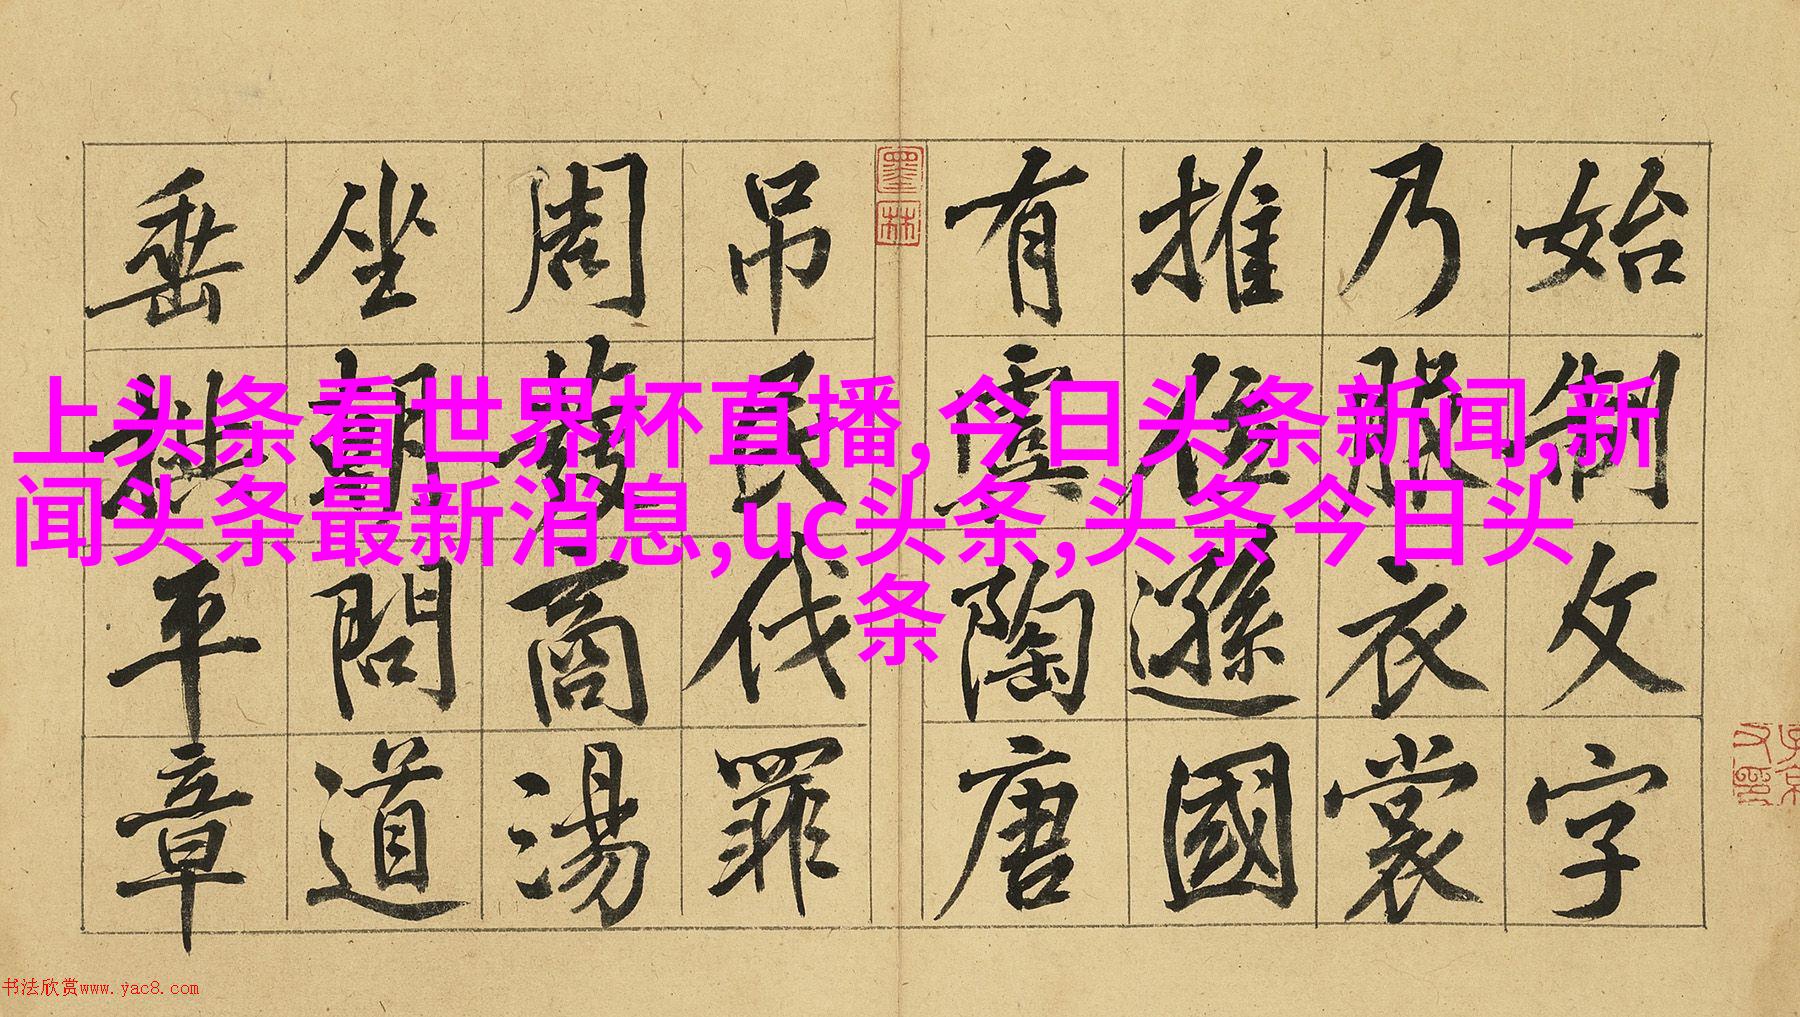 上头条看世界杯直播,今日头条新闻,新
闻头条最新消息,uc头条,头条今日头
条
始制文字
乃服衣裳
推位遜國
有虞陶唐
墨林
吊民伐罪
周發商湯
坐朝問道
垂拱平章
书法欣赏www.yac8.com